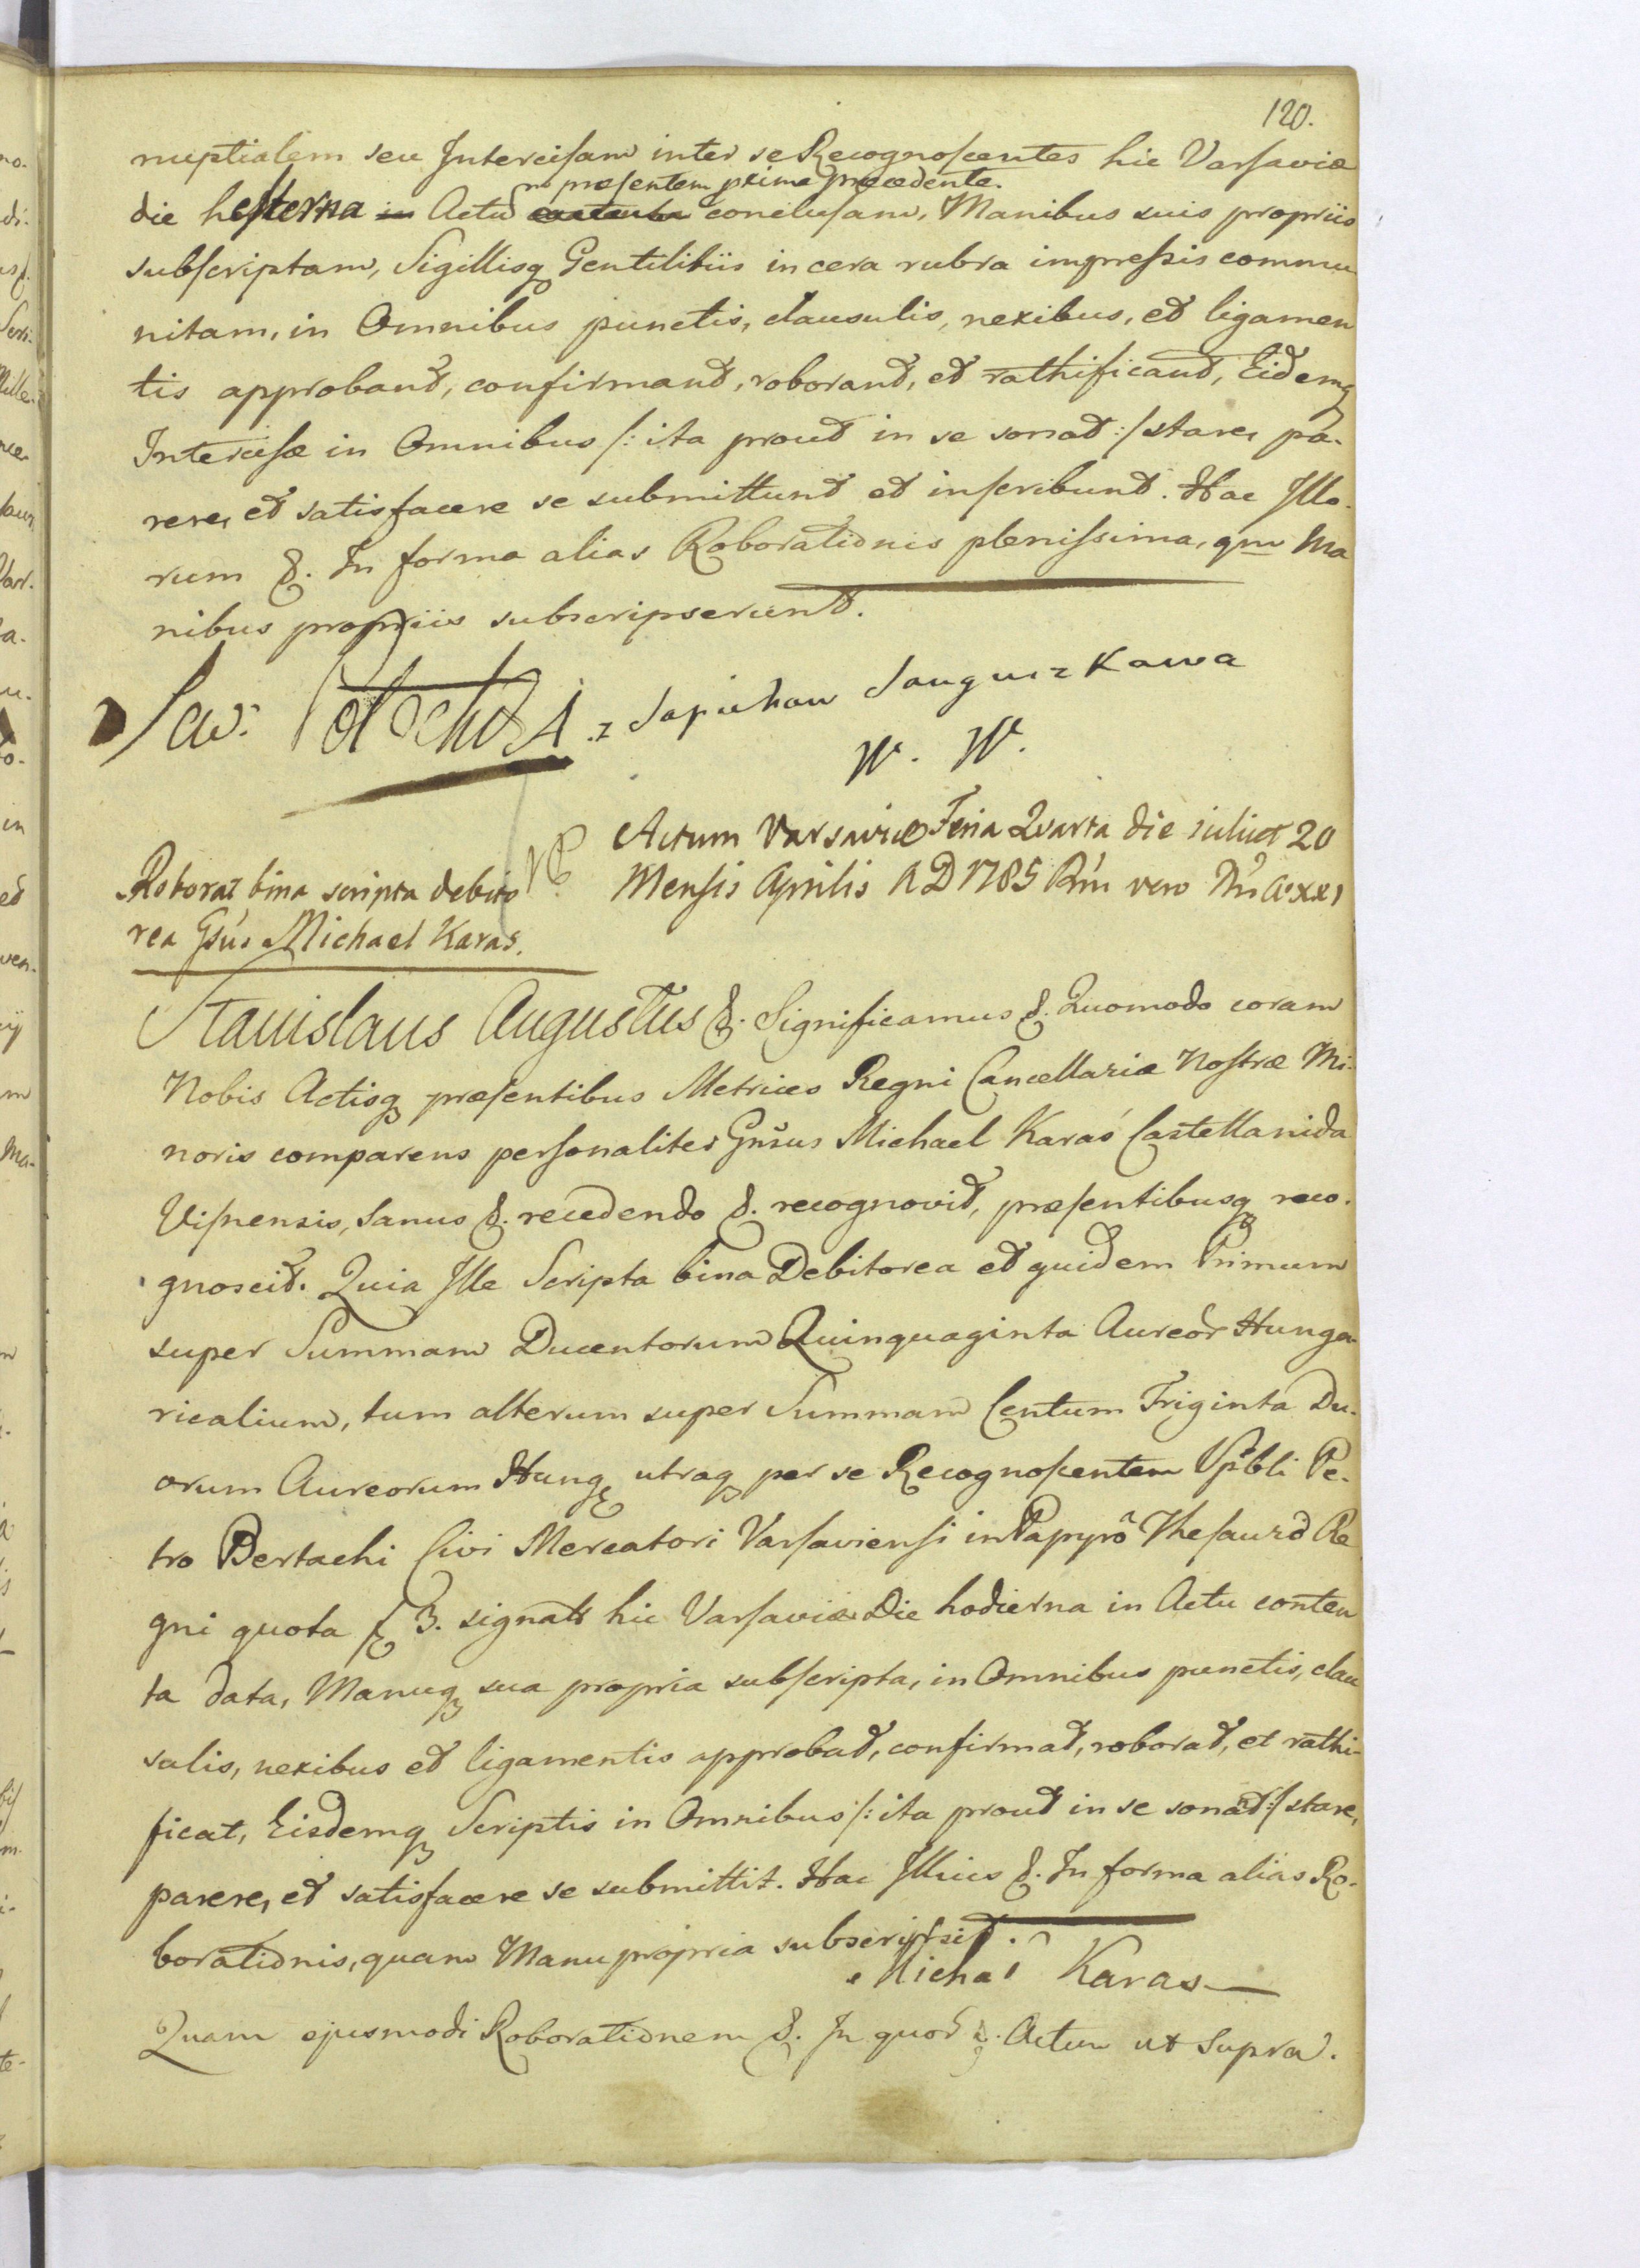 120.
nuptialem seu Intercisam inter se Recognoscentes hic Varsaviæ
no præsentem prima præcedente.
die hesterna in Actu contenta conclusam, Manibus suis propriis
subscriptam, Sigillisq Gentilitiis in cera rubra impressis commu
nitam, in Omnibus punctis, clausulis, nexibus, et ligamen
tis approbant, confirmant, roborant, et rathificant, Eidemq
Intercisæ in Omnibus /: ita prout in se sonat :/ stare, pa-
rere, et satisfacere se submittunt et inscribunt. Hac Illo-
rum &. In forma alias Roborationis plenissima, qm Ma
nibus propriis subscripserunt.
Potocki
z Sapiehow Sanguszkowa
W. W.
Actum Varsaviæ Feria Quarta die 20
Mensis Aprilis A D 1785 Rni vero Nri Ao XXI
Roborat bina scripta debito
rea Gsus Michael Karas.
Stanislaus Augustus &. Significamus &. Quomodo coram
Nobis Actisq præsentibus Metrices Regni Cancellariæ Nostræ Mi-
noris comparens personaliter Gnsus Michael Karaś Castellanida
Visnensis, Sanus &. recedendo &. recognovit, præsentibusq reco-
gnoscit. Quia Ille Scripta bina Debitorea et quidem Primum
super Summam Ducentorum Quinquaginta Aureor Hunga-
ricalium, tum alterum super Summam Centum Triginta Du-
orum Aureorum Hung utraq per se Recognoscentem Spbli Pe-
tro Bertachi Civi Mercatori Varsaviensi in Papyro Thesauro Re
gni quota f 3. signato hic Varsaviæ Die hodierna in Actu conten
ta data, Manuq sua propria subscripta, in Omnibus punctis, clau
sulis, nexibus et ligamentis approbat, confirmat, roborat, et rathi-
ficat, Eisdemq Scriptis in Omnibus /: ita prout in se sonant :/ stare,
parere, et satisfacere se submittit. Hac Illius &. In forma alias Ro-
borationis, quam Manu propria subscripsit.
Michał Karas
Quam ejusmodi Roborationem &. In quor &. Actum ut Supra.